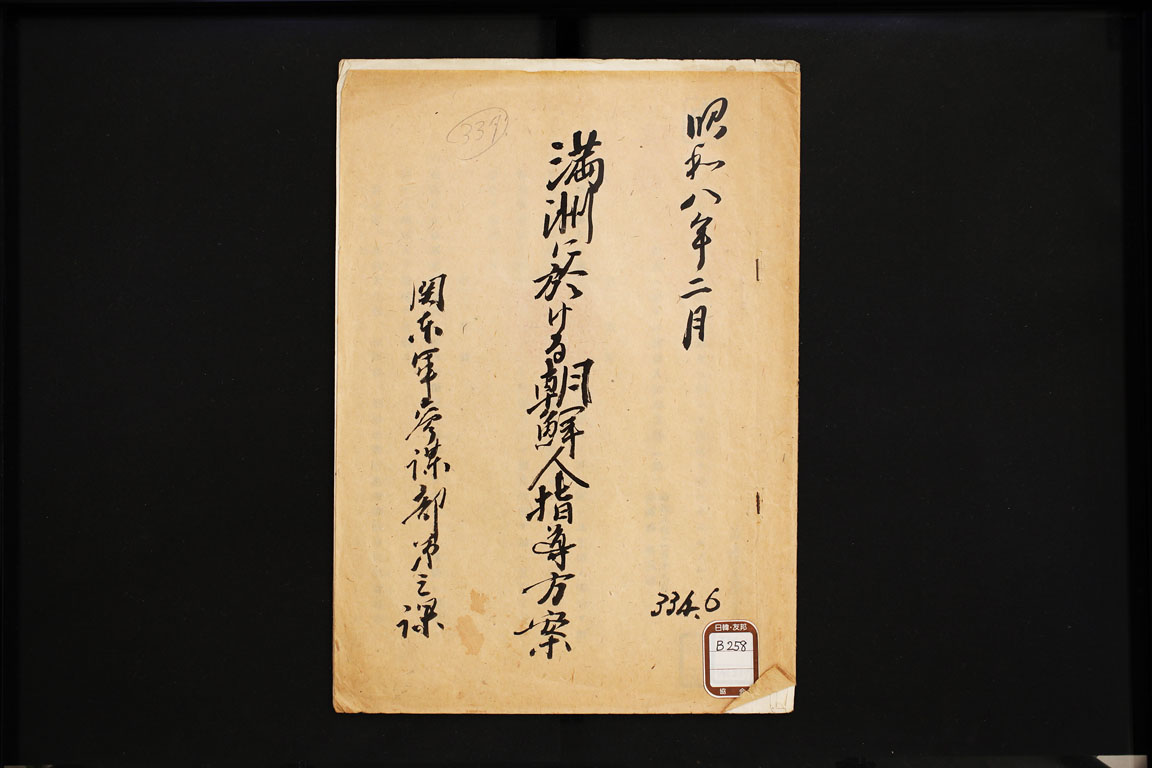 昭和八年二月
満洲に於ける朝鮮人指導方案
関東軍参謀部第三課
334.6
日韓・友邦
B258
協会